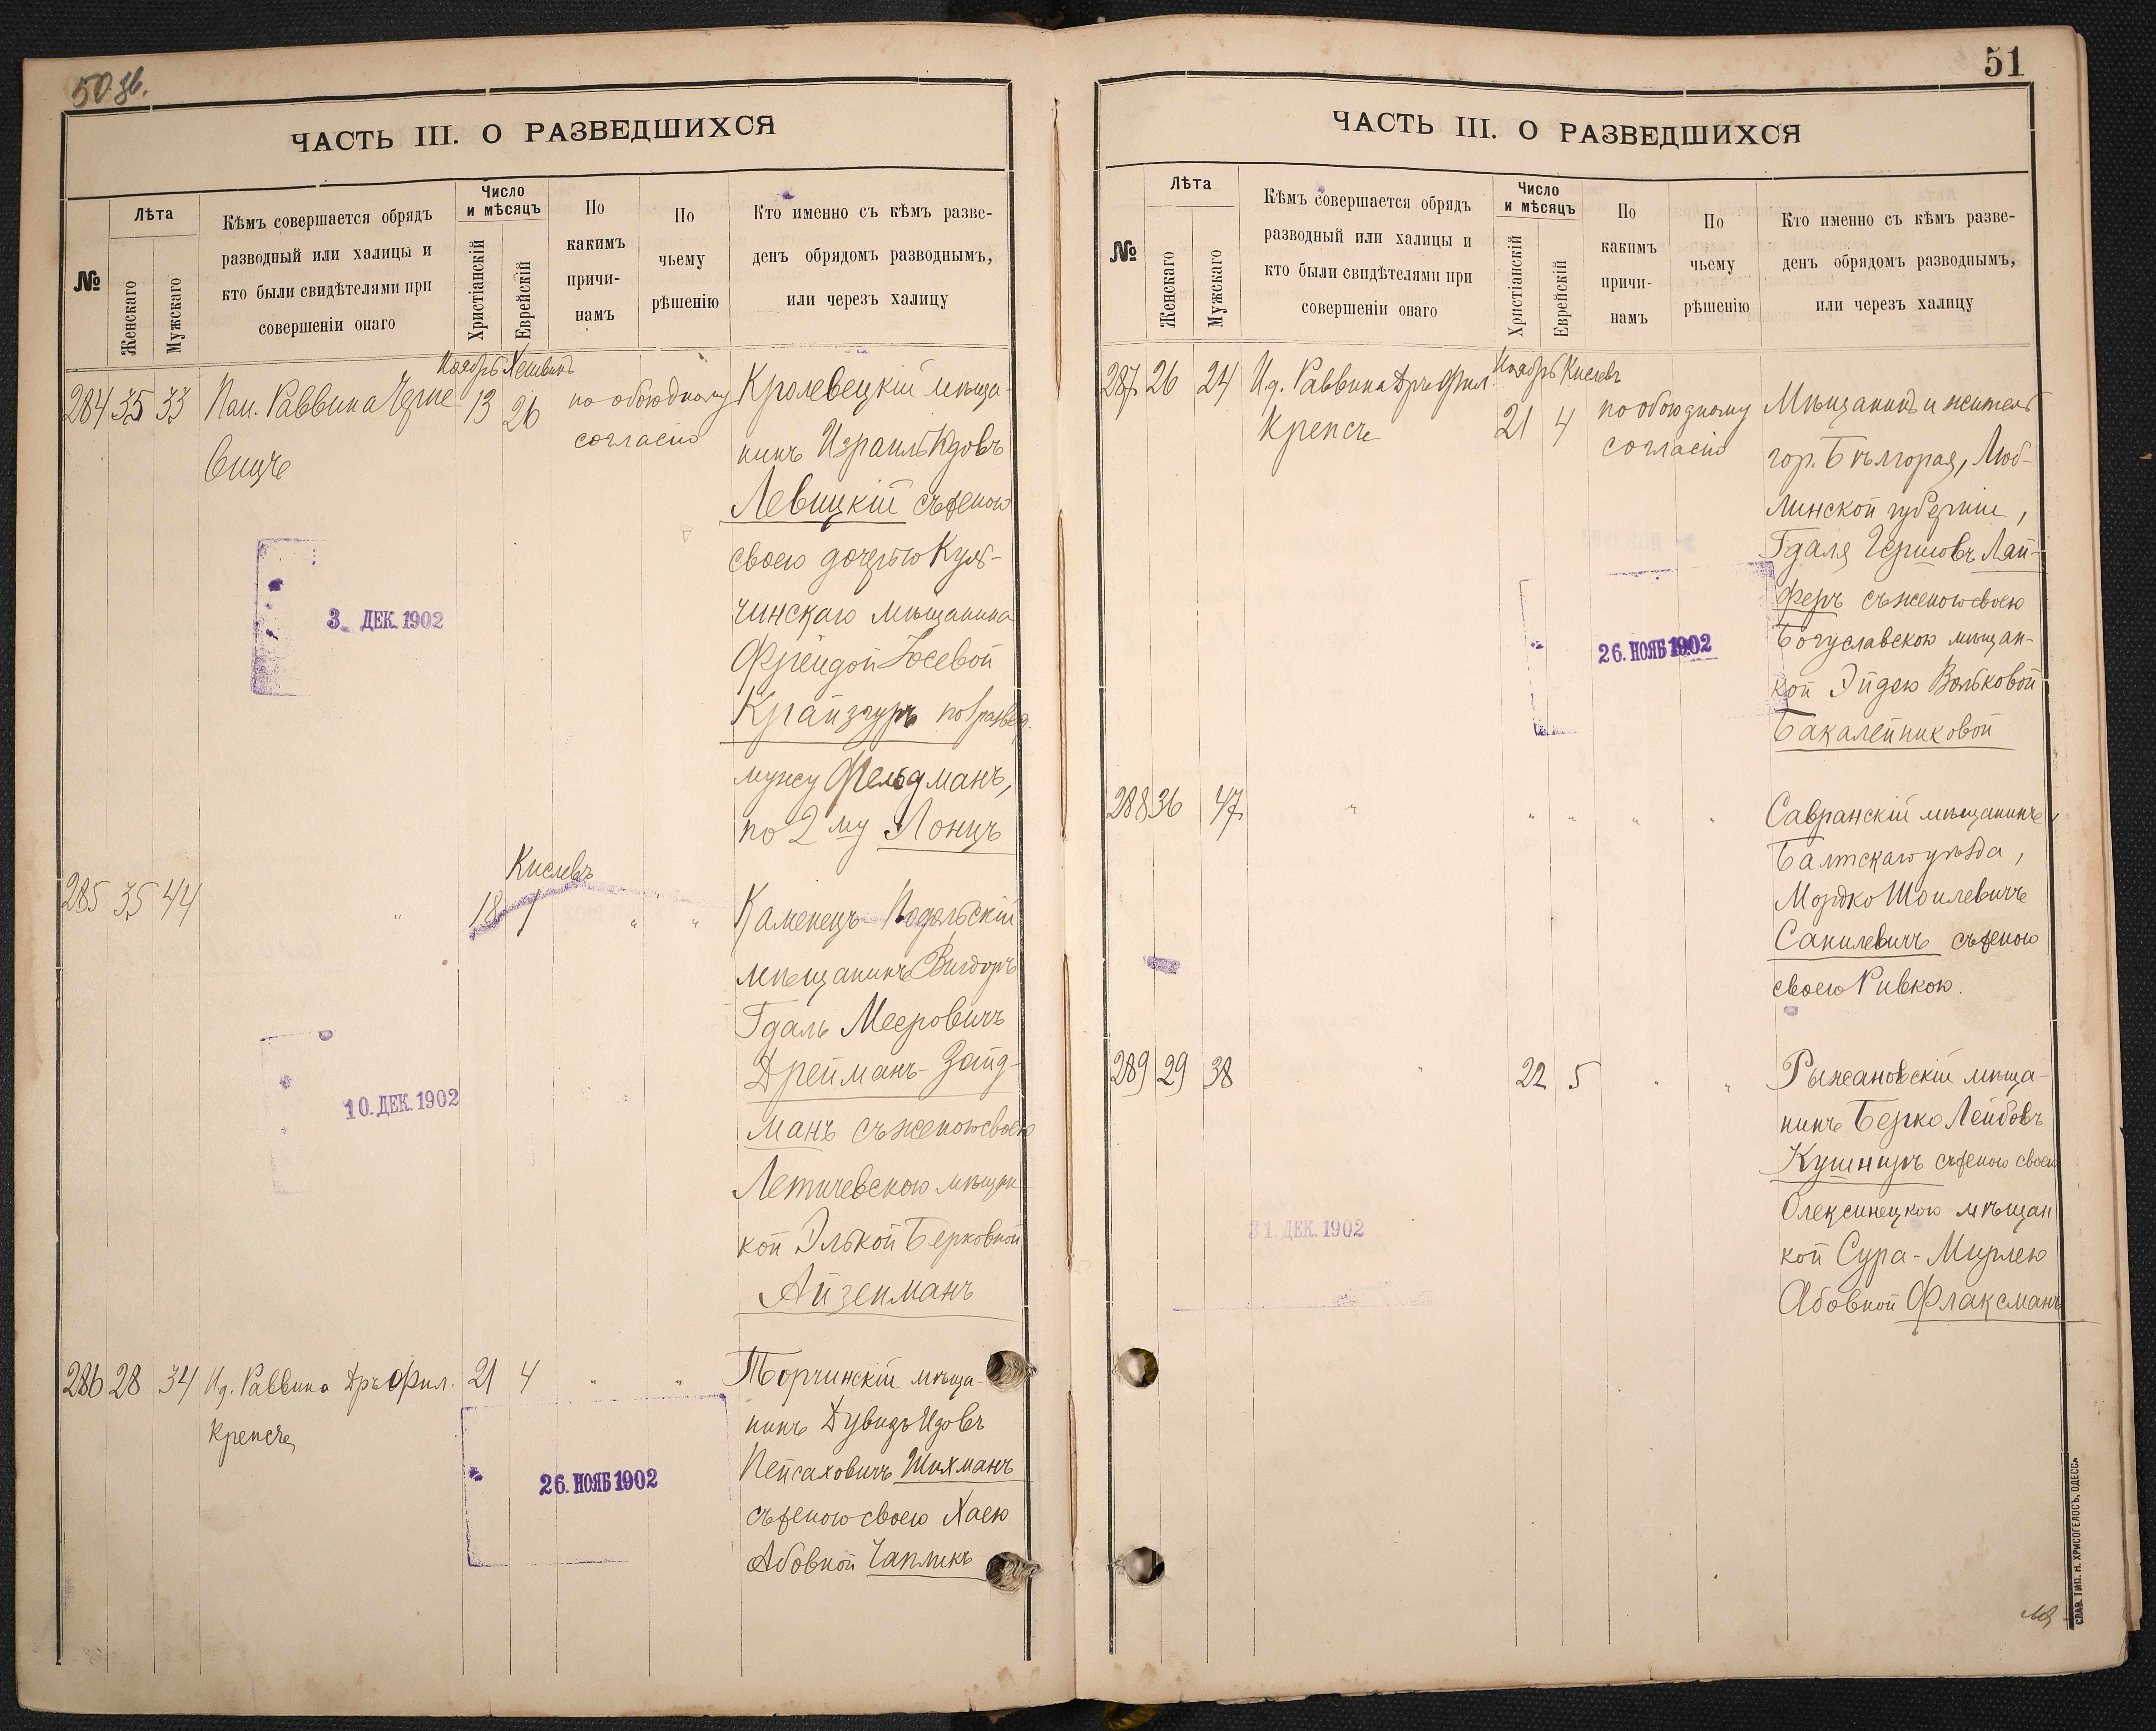 50 зв.
ЧАСТЬ III. О РАЗВЕДШИХСЯ
№
Лѣта
Женскаго
Мужскаго
Кѣмъ совершается обрядъ
разводный или халицы и
кто были свидѣтелями при
совершеніи онаго
Число
и мѣсяцъ
Христіанскій
Еврейскій
По
какимъ
причи-
намъ
По
чьему
рѣшенію
Кто именно съ кѣмъ разве-
денъ обрядомъ разводнымъ,
или черезъ халицу
Ноябрь Хешванъ
284 35 33 Раввина 13 26 по обоюдному
согласію
Кролевецкій мѣща-
нинъ Израиль Идовъ
Левицкій съ женою
своею дочерью Куль-
чинскаго мѣщанина
Фрейдой Іосевой
Крайзгуръ по 1 развед.
мужу Фельдманъ,
по 2 му Лонцъ
3. ДЕК. 1902
Кислевъ
285 35 44 " 18 1 " "
Каменецъ-Подольскій
мѣщанинъ Вигдоръ
Гдаль Мееровичъ
Дрейманъ-Зайд-
манъ съ женою своею
Летичевскою мѣщан
кой Элькой Берковной
Айзенманъ
10. ДЕК. 1902
286 28 34 И.д. Раввина Дръ Фил. 21 4 " "
Крепсъ
Торчинскій мѣща-
нинъ Дувидъ Идовъ
Пейсаховичъ Шихманъ
съ женою своею Хаею
Абовной Чапликъ
26. НОЯБ 1902
51
ЧАСТЬ III. О РАЗВЕДШИХСЯ
№
Лѣта
Женскаго
Мужскаго
Кѣмъ совершается обрядъ
разводный или халицы и
кто были свидѣтелями при
совершеніи онаго
Число
и мѣсяцъ
Христіанскій
Еврейскій
По
какимъ
причи-
намъ
По
чьему
рѣшенію
Кто именно съ кѣмъ разве-
денъ обрядомъ разводнымъ,
или черезъ халицу
Ноябрь Кислевъ
287 26 24 И.д. Раввина Дръ Фил. 21 4 по обоюдному
Крепсъ согласію
Мѣщанинъ и житель
гор. Бѣлгорая, Люб-
линской губерніи,
Гдаля Гершовъ Лай-
феръ съ женою своею
Богуславскою мѣщан-
кой Эйдею Вольковой
Бакалейниковой
26. НОЯБ 1902
288 36 47 " " " " "
Савранскій мѣщанинъ,
Балтскаго уѣзда,
Мордко Шоилевичъ
Санилевичъ съ женою
своею Ривкою.
289 29 38 " 22 5 " "
Рыжановскій мѣща-
нинъ Берко Лейбовъ
Кушниръ съ женою своею
Олексинецкою мѣщан
кой Сура-Мирлею
Абовной Флаксманъ
31. ДЕК. 1902
СЛАВ. ТИП. Н. ХРИСОГЕЛОСЪ, ОДЕССА